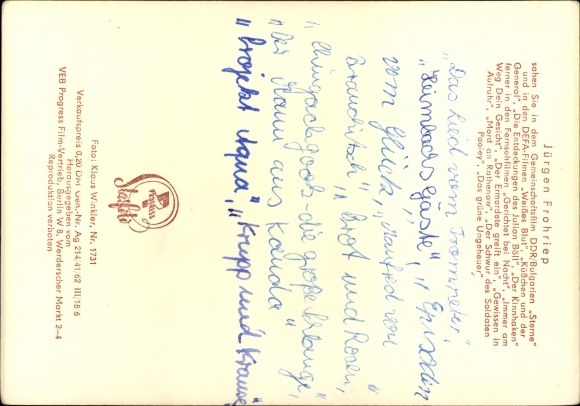 Jürgen Frohriep
sahen Sie in dem Gemeinschaftsfilm DDR/Bulgarien „Sterne"
und in den DEFA-Filmen „Weißes Blut", „Küßchen und der
General", „Die Entdeckungen des Julian Böll", „Der Kinnhaken"
ferner in den Fernsehfilmen „Gerichtet bei Nacht", „Immer am
Weg Dein Gesicht", „Der Ermordete greift ein", „Gewissen in
Aufruhr", „Mord an Rathenow", „Der Schwur des Soldaten
Pooley", „Das grüne Ungeheuer"
„Das Lied vom Trompeter",
„Heimbergs Gäste", Episoden
vom Glück, „Manfred von
Brauchitsch", „Brot und Rosen",
„Chingachgook die große Schlange",
„Der Mann aus Kanada"
„Projekt Aqua", „Krupp und Krause"
Progress
Starfoto
Foto: Klaus Winkler, Nr. 1731
Verkaufspreis 0,20 DM Gen.-Nr. Ag 214/41/62 III/18 6
Herausgegeben vom
VEB Progress Film-Vertrieb, Berlin W 8, Werderscher Markt 2–4
Reproduktion verboten